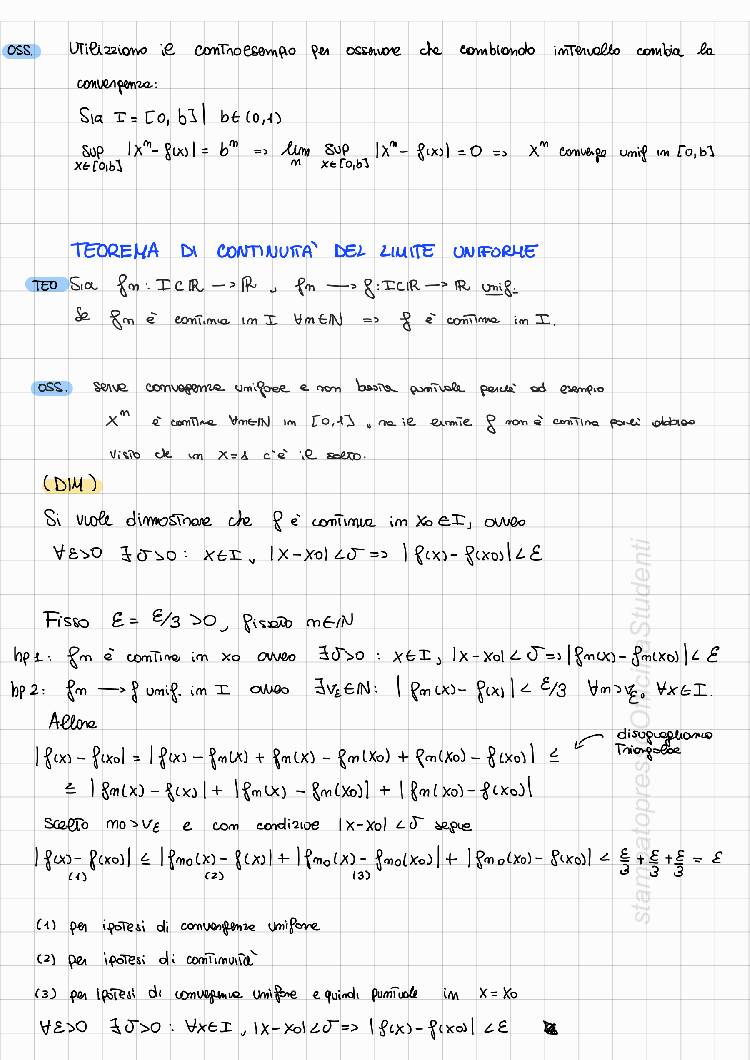 OSS. Utilizziamo il controesempio per osservare che cambiando intervallo cambia la
convergenza:
Sia I = [0, b] | b∈(0,1)
sup |xⁿ - f(x)| = bⁿ => lim sup |xⁿ - f(x)| = 0 => xⁿ converge unif in [0,b]
x∈[0,b] n x∈[0,b]
TEOREMA DI CONTINUITA' DEL LIMITE UNIFORME
TEO Sia fn : I⊂ℝ -> ℝ, fn -> f : I⊂ℝ -> ℝ unif.
Se fn è continua in I ∀n∈ℕ => f è continua in I.
OSS. serve convergenza uniforme e non basta puntuale perché ad esempio
xⁿ è continua ∀n∈ℕ in [0,1], ma il f non è continua abbiamo
visto che in x=1 c'è il salto.
(DIM)
Si vuole dimostrare che f è continua in x₀∈I, ovvero
∀ε>0 ∃δ>0 : x∈I, |x-x₀|<δ => |f(x)-f(x₀)|<ε
Fisso ε = ε/3 >0, fissato n∈ℕ
hp1: fn è continua in x₀ ovvero ∃δ>0 : x∈I, |x-x₀|<δ => |fn(x)-fn(x₀)|<ε
hp2: fn -> f unif. in I ovvero ∃νε∈ℕ: |fn(x)-f(x)|<ε/3 ∀n>νε, ∀x∈I.
Allora
|f(x)-f(x₀)| = |f(x)-fn(x)+fn(x)-fn(x₀)+fn(x₀)-f(x₀)| ≤
disuguaglianza
Triangolare
≤ |fn(x)-f(x)| + |fn(x)-fn(x₀)| + |fn(x₀)-f(x₀)|
Scelto n₀>νε e con condizione |x-x₀|<δ segue
|f(x)-f(x₀)| ≤ |fn₀(x)-f(x)| + |fn₀(x)-fn₀(x₀)| + |fn₀(x₀)-f(x₀)| < ε/3 + ε/3 + ε/3 = ε
(1) (2) (3)
(1) per ipotesi di convergenza uniforme
(2) per ipotesi di continuità
(3) per ipotesi di convergenza uniforme e quindi puntuale in x=x₀
∀ε>0 ∃δ>0 : ∀x∈I, |x-x₀|<δ => |f(x)-f(x₀)|<ε